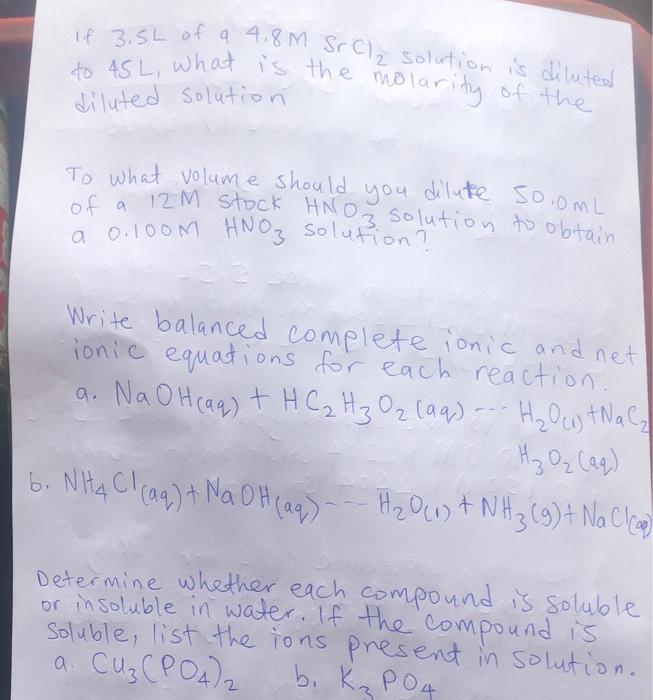 If 3.5L of a 4.8M SrCl₂ solution is diluted
to 45L, what is the molarity of the
diluted solution
To what volume should you dilute 50.0mL
of a 12M stock HNO₃ solution to obtain
a 0.100M HNO₃ solution?
Write balanced complete ionic and net
ionic equations for each reaction.
a. NaOH(aq) + HC₂H₃O₂(aq) --- H₂O(l) + NaC₂
H₃O₂(aq)
b. NH₄Cl(aq) + NaOH(aq) --- H₂O(l) + NH₃(g) + NaCl(aq)
Determine whether each compound is soluble
or insoluble in water. If the compound is
soluble, list the ions present in solution.
a. Cu₃(PO₄)₂ b. K₃PO₄